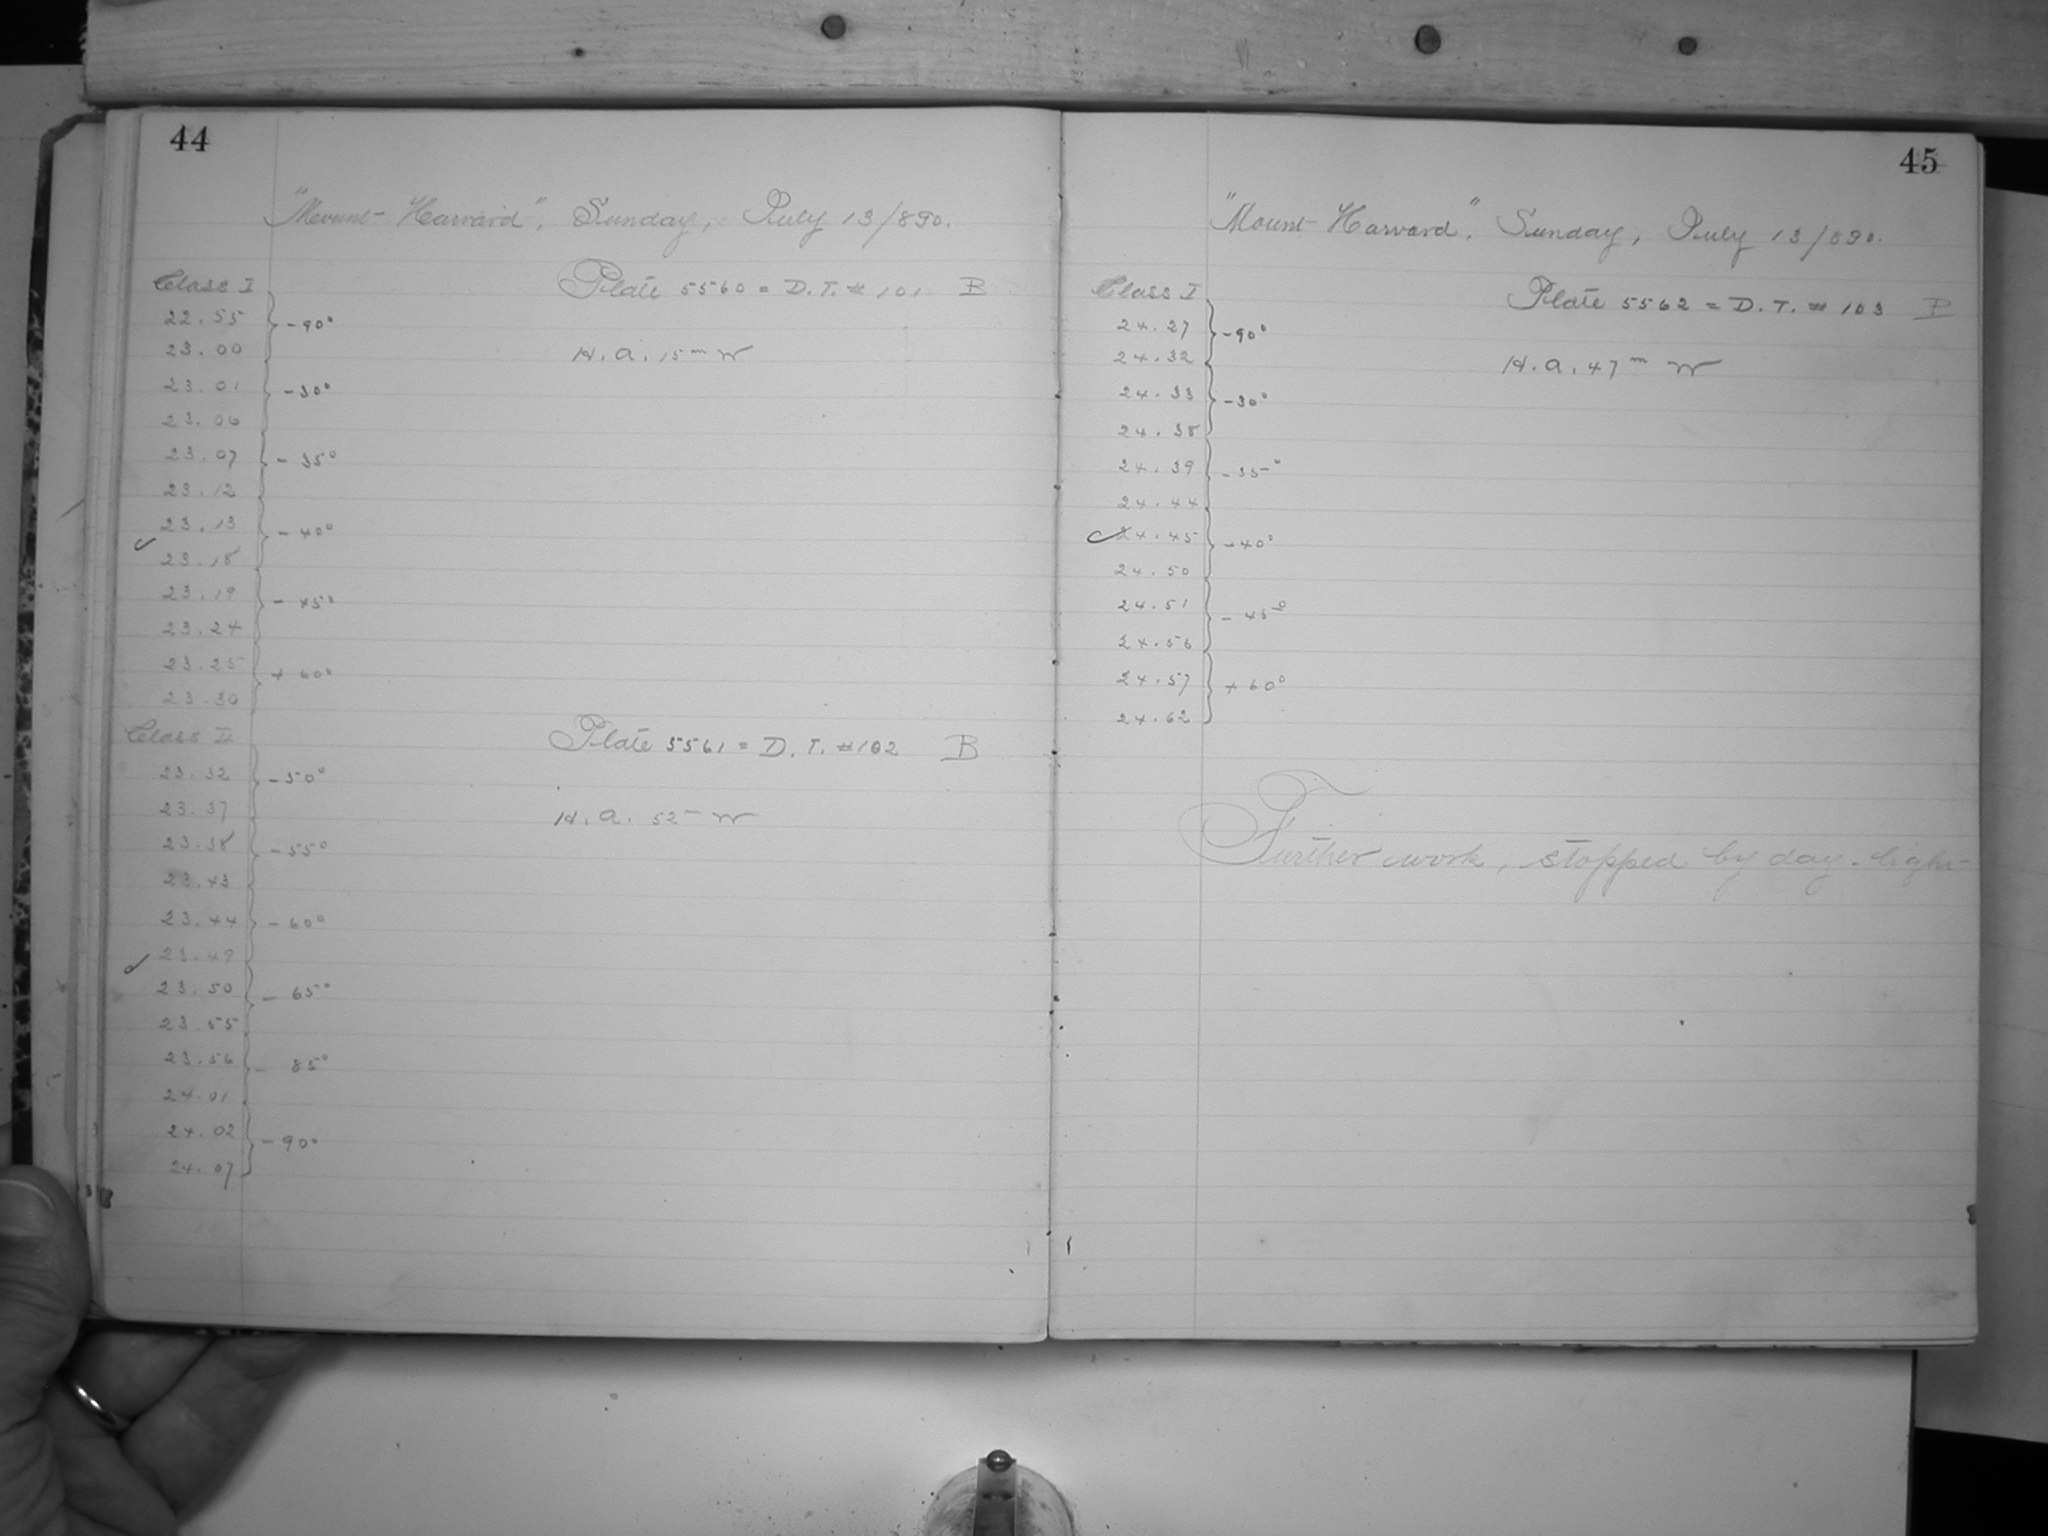 44
"Mount Harvard", Sunday, July 13/890.
Class I Plate 5560 = D.T. # 101 B
22.55 -90°
23.00 H.a. 15m W
23.01 -30°
23.06
23.07 -35°
23.12
23.13 -40°
23.18
23.19 -45°
23.24
23.25 +60°
23.30
Class II Plate 5561 = D.T. #102 B
23.32 -50°
23.37 H.a. 52m W
23.38 -55°
23.43
23.44 -60°
23.49
23.50 -65°
23.55
23.56 -85°
24.01
24.02 -90°
24.07
45
"Mount Harvard". Sunday, July 13/890.
Class I Plate 5562 = D.T. # 103 B
24.27 -90°
24.32 H.a. 47m W
24.33 -30°
24.38
24.39 -35°
24.44
24.45 -40°
24.50
24.51 -45°
24.56
24.57 +60°
24.62
Further work, stopped by day-light